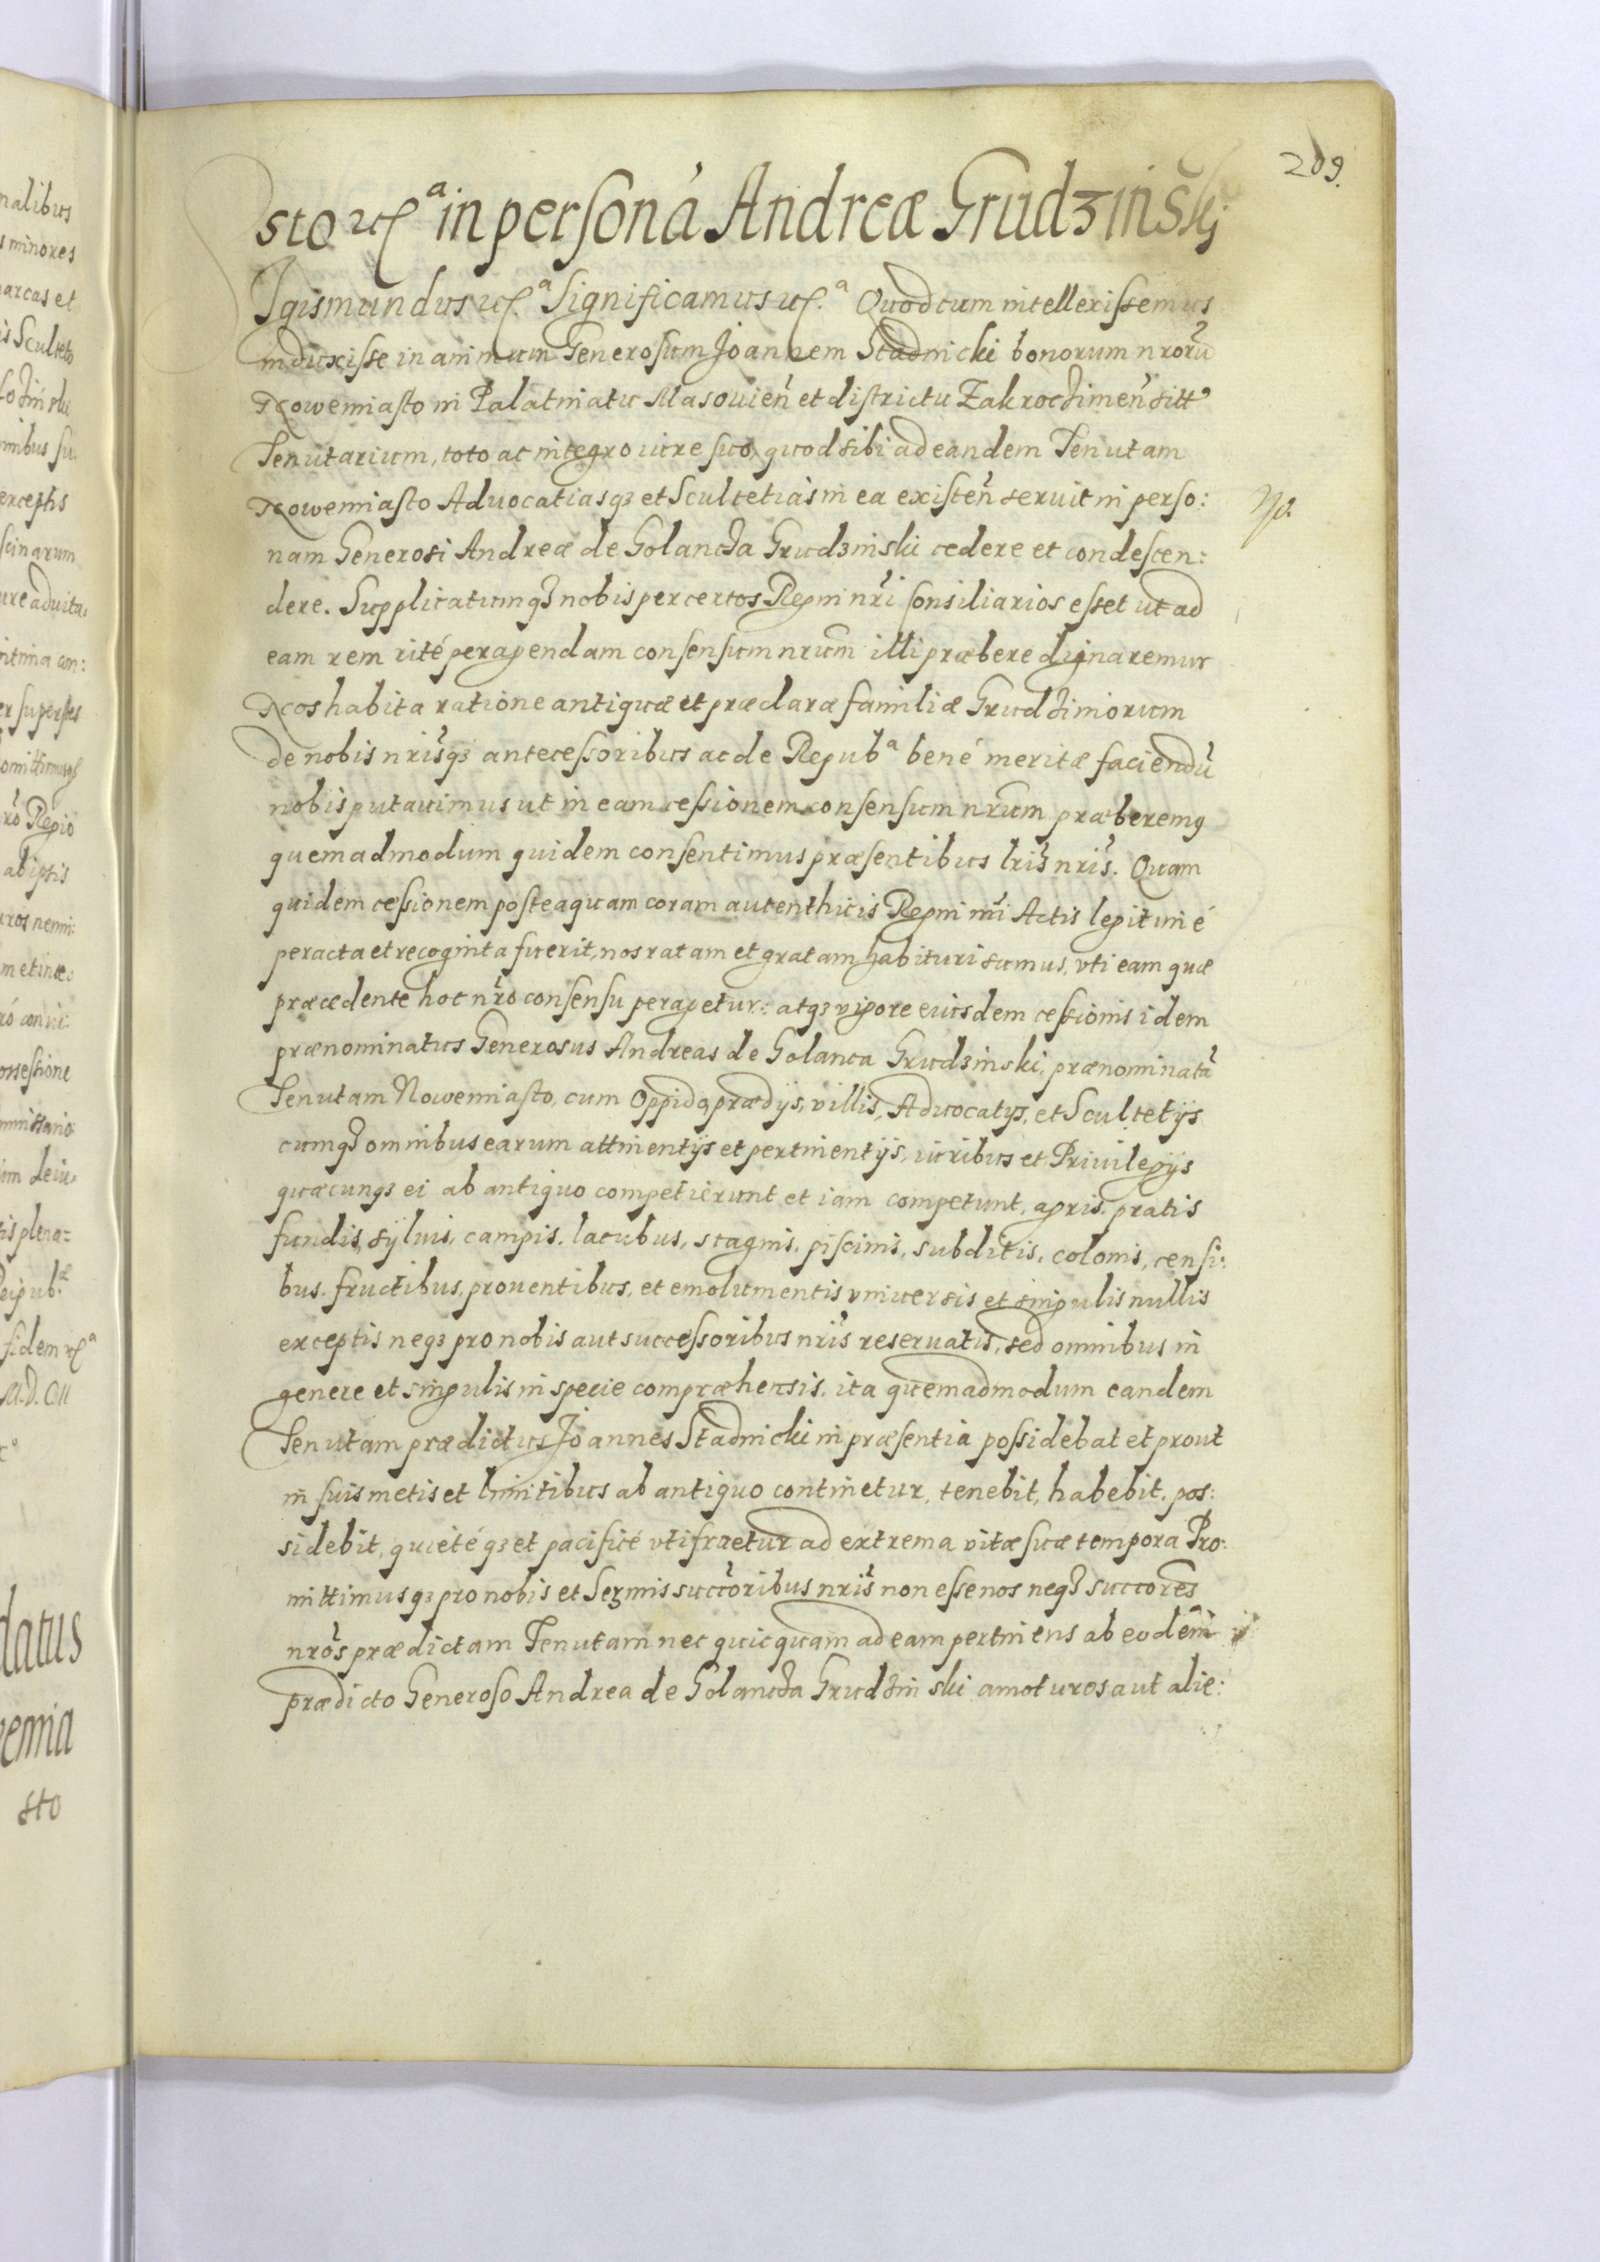 209.
sto etc.ª in personá Andreæ Grudzinskj
Igismundus etc.ª Significamus etc.ª Quod cum intellexissemus
induxisse in animum Generosum Joannem Stadnicki bonorum nrorũ
Nowemiasto in Palatinatu Masouien̄ et districtu Zakroczimen̄ sitt
Tenutarium, toto ac integro iure suo, quod sibi ad eandem Tenutam
Nowemiasto Aduocatiasq3 et Scultetias in ea existen̄ seruit in perso:
No.
nam Generosi Andreæ de Golancza Grudzinski cedere et condescen:
dere. Supplicatumq3 nobis per certos Regni nr̃i Consiliarios esset ut ad
eam rem rité peragendam consensum nrum̃ illi præbere dignaremur
Nos habita ratione antiquæ et præclaræ familiæ Grudzimiorum
de nobis nrisq3 antecessoribus ac de Repubª bené meritæ faciendũ
nobis putauimus ut in eam cessionem consensum nrũm præberemq
quemadmodum quidem consentimus præsentibus lris̃ nris̃. Quam
quidem cessionem posteaquam coram autenthicis Regni nri Actis legitimé
peracta et recognita fuerit, nos ratam et gratam habituri sumus, vti eam quæ
præcedente hoc nr̃o consensu peragetur: atq3 vigore eiusdem cessionis idem
prænominatus Generosus Andreas de Golanca Grudzinski, prænominatã
Tenutam Nowemiasto, cum Oppido, prædijs, villis, Aduocatijs, et Scultetijs
cumq3 omnibus earum attinentijs et pertinentijs, iuribus et Priuilegijs
quæcunq3 ei ab antiquo competierunt et iam competunt, agris, pratis
fundis, syluis, campis, lacubus, stagnis, piscinis, subditis, colonis, censi:
bus, fructibus, prouentibus, et emolumentis vniuersis et singulis nullis
exceptis neq3 pro nobis aut successoribus nris̃ reseruatis, sed omnibus in
genere et singulis in specie compræhensis, ita quemadmodum eandem
Tenutam prædictus Joannes Stadnicki in præsentia possidebat et prout
in suis metis et limitibus ab antiquo continetur, tenebit, habebit, pos:
sidebit, quietéq3 et pacificé vtifruetur ad extrema vitæ suæ tempora Pro:
mittimusq3 pro nobis et Serm̃is succõribus nris̃ non esse nos neq3 succores̃
nros̃ prædictam Tenutam nec quicquam ad eam pertinens ab eodem̃
prædicto Generoso Andrea de Golancza Grudzin ski amoturos aut alie: